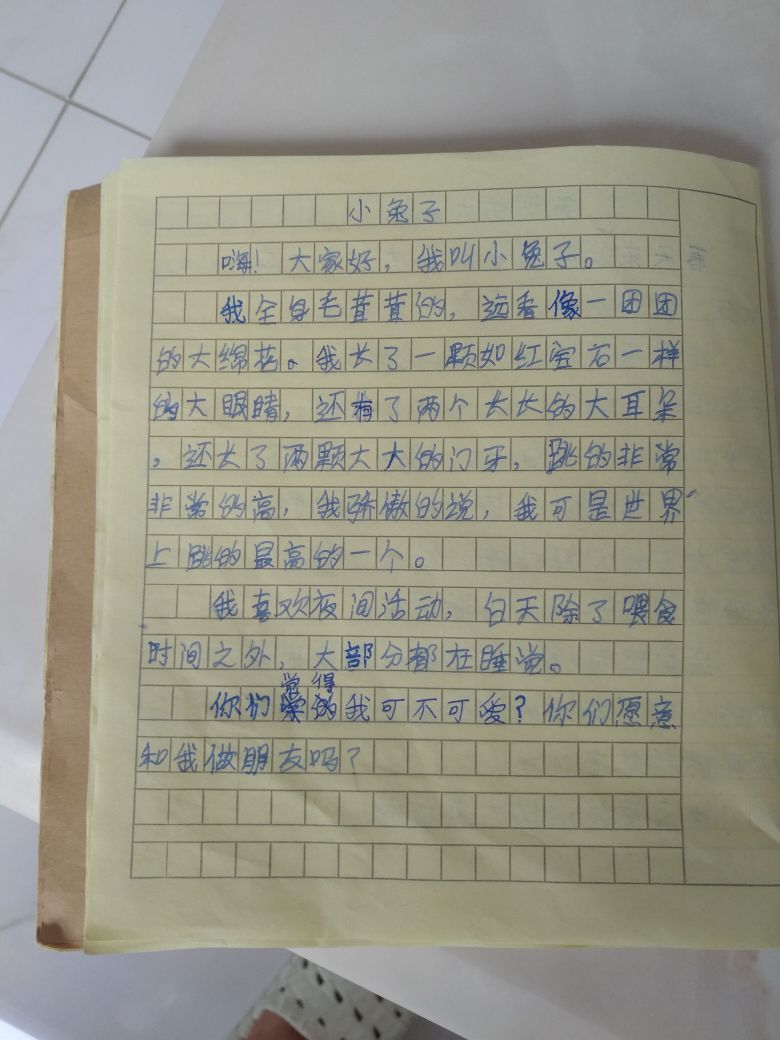 小兔子
嗨！大家好，我叫小兔子。
我全身毛茸茸的，远看像一团团
的大绵花。我长了一颗如红宝石一样
的大眼睛，还有了两个长长的大耳朵
，还长了两颗大大的门牙，跳的非常
非常的高，我骄傲的说，我可是世界
上跳的最高的一个。
我喜欢夜间活动，白天除了喂食
时间之外，大部分都在睡觉。
觉得
你们我可不可爱？你们愿意
和我做朋友吗？